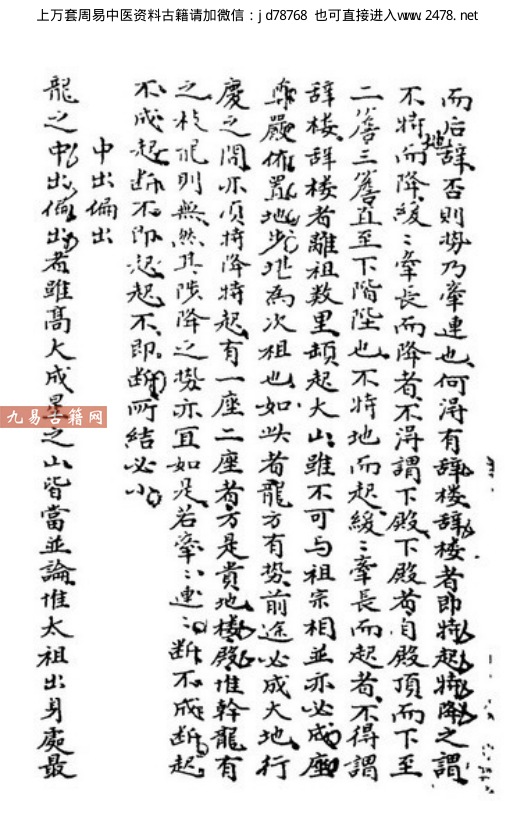 上万套周易中医资料古籍请加微信：jd78768 也可直接进入www.2478.net
而后辞否則势乃牽連也何得有辞楼辞楼者即特起特降之謂
不特地而降緩〻牽長而降者不得謂下殿下殿者自殿頂而下至
二簷三簷直至下階陛也不特地而起緩〻牽長而起者不得謂
辞楼辞楼者離祖数里頓起大山雖不可与祖宗相並亦必成座
尊嚴俯置地步足為次祖也如此者龍方有势前途必成大地行
度之間亦須特降特起有一座二座者方是貴地楼殿惟幹龍有
之枝龍則無然其陟降之势亦宜如是若牽〻連〻断不成断起
不成起断不即起起不即断所結必小
中出偏出
龍之中出偏出者雖高大成星之山皆當並論惟太祖出身處最
九易古籍网